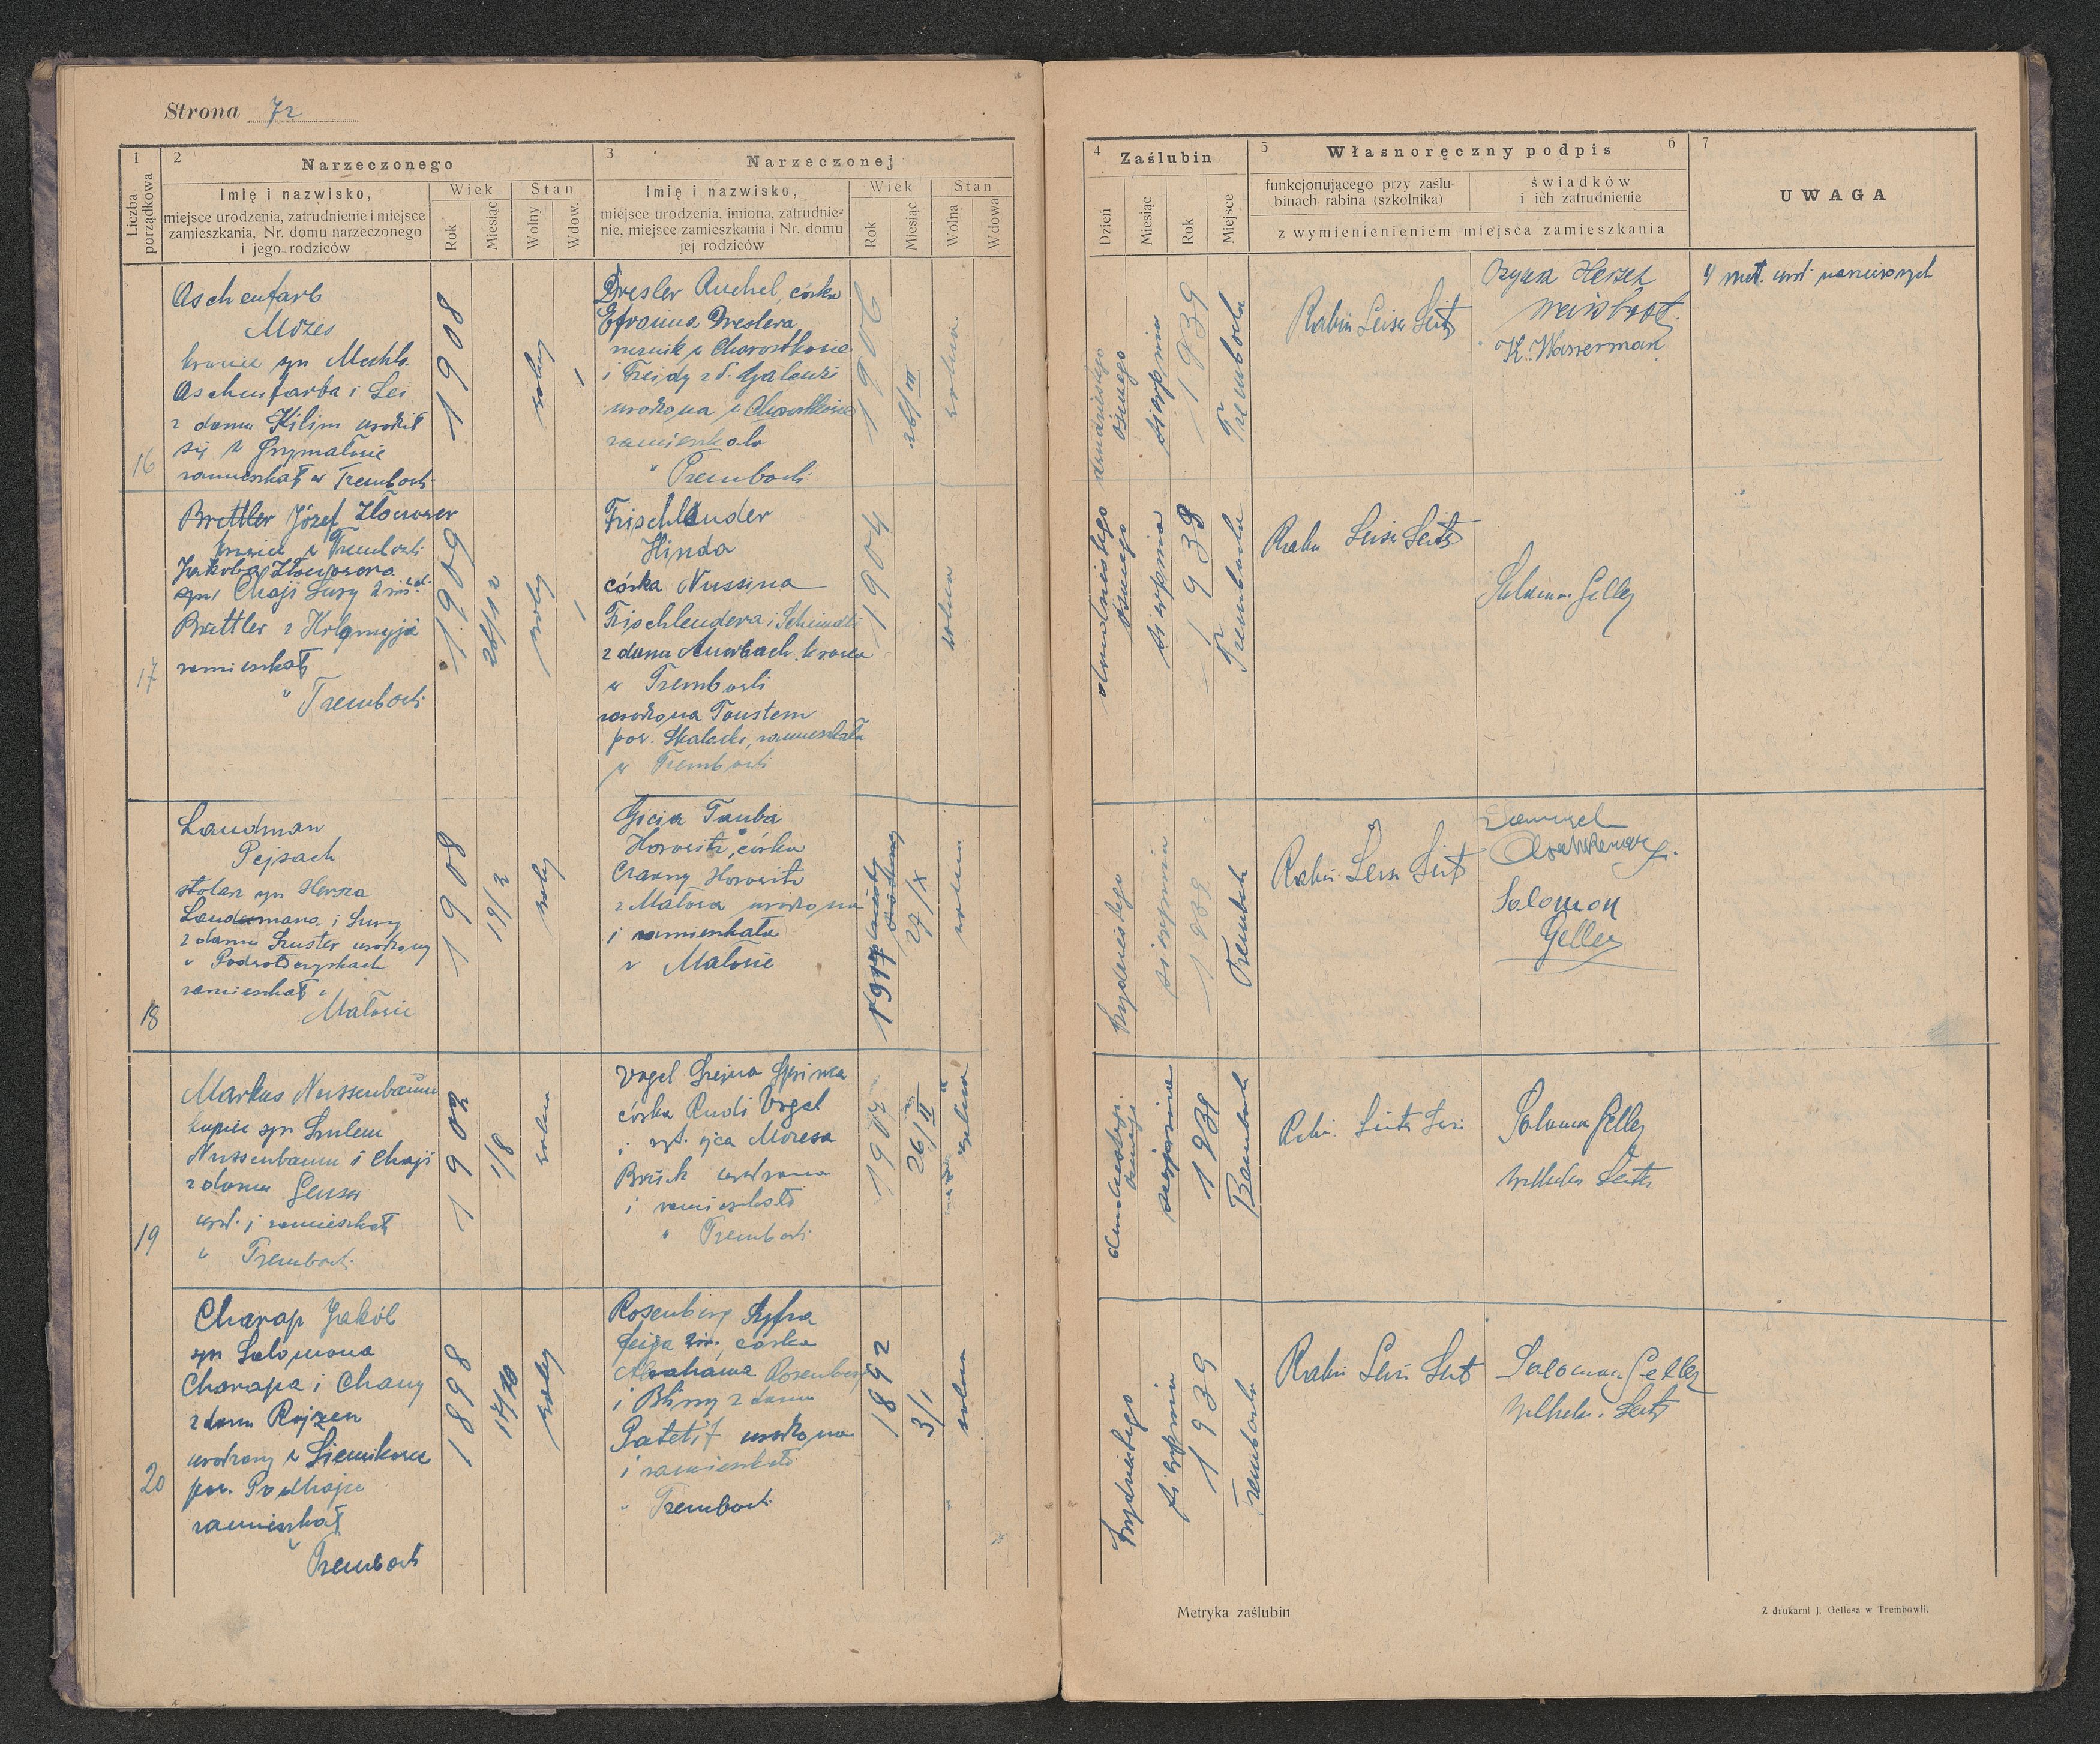 Strona 72
1
2
Narzeczonego
3
Narzeczonej
Liczba porządkowa
Imię i nazwisko,
miejsce urodzenia, zatrudnienie i miejsce
zamieszkania, Nr. domu narzeczonego
i jego rodziców
Wiek
Stan
Rok
Miesiąc
Wolny
Wdow.
Imię i nazwisko,
miejsce urodzenia, imiona, zatrudnie-
nie, miejsce zamieszkania i Nr. domu
jej rodziców
Wiek
Stan
Rok
Miesiąc
Wolna
Wdowa
4
Zaślubin
5
Własnoręczny podpis
6
7
Dzień
Miesiąc
Rok
Miejsce
funkcjonującego przy zaślu-
binach rabina (szkolnika)
świadków
i ich zatrudnienie
z wymienienieniem miejsca zamieszkania
UWAGA
16
Aschenfarb
Mozes
krawiec syn
Aschenfarba i Lei
z domu Kilim urodził
się w Grzymałowie
zamieszkał w Trembowli
1908
wolny
Dresler Ruchel, córka
Efroima Dreslera
w Chorostkowie
i Freidy z d.
urodzona w Chorostkowie
zamieszkała
w Trembowli
1906
26/III
wolna
dwudziestego
ósmego
sierpnia
1939
Trembowla
Rabin Leiser Seitz
Herzek
Weisbrot
K. Wasserman
1) met. urod. narzeczonych
17
Brettler Józef Złoczower
krawiec w Trembowli
Jakóba Złoczowera
syn i Chaji Sury 2 im. z d.
Brettler z Kołomyja
zamieszkał
w Trembowli
1909
26/12
wolny
Frischlender
Hinda
córka Nussina
Frischlendera i Scheindli
z domu Auerbach. krawca
w Trembowli
urodzona Toustem
pow. Skałacki, zamieszkała
w Trembowli
1904
wolna
dwudziestego
ósmego
sierpnia
1939
Trembowla
Rabin Leiser Seitz
Salomon Geller
18
Landman
Pejsach
stolarz syn Hersza
Landmana i Sury
z domu Szuster urodzony
w Podwołoczyskach
zamieszkał w
Małowie
1908
19/3
wolny
Gicia Tauba
Horowitz, córka
Czarny Horowitz
z Małowa urodzona
i zamieszkała
w Małowie
1917
27/X
wolna
trzydziestego
sierpnia
1939
Trembowla
Rabin Leiser Seitz
Samuel
Salomon
Geller
19
Markus Nussenbaum
kupiec syn Szulem
Nussenbaum i Chaji
z domu Genser
urod. i zamieszkał
w Trembowli
1902
1/8
wolny
Vogel Szejna
córka Rudi Vogel
i ojca Mozesa
Brück urodzona
i zamieszkała
w Trembowli
26/II
wolna
dwudziestego
ósmego
sierpnia
1939
Trembowla
Rabin Seitz Leiser
Salomon Geller
Wilhelm Seitz
20
Charap Jakób
syn Salomona
Charapa i Chany
z domu Rojzen
urodzony w Siemikowce
pow. Podhajce
zamieszkał
w Trembowli
1898
wolny
Rosenberg Szyfra
Feiga 2 im., córka
Abrahama Rosenberg
i Bliny z domu
urodzona
i zamieszkała
w Trembowli
1892
3/1
wolna
trzydziestego
sierpnia
1939
Trembowla
Rabin Leiser Seitz
Salomon Geller
Wilhelm Seitz
Metryka zaślubin
Z drukarni J. Gellesa w Trembowli.